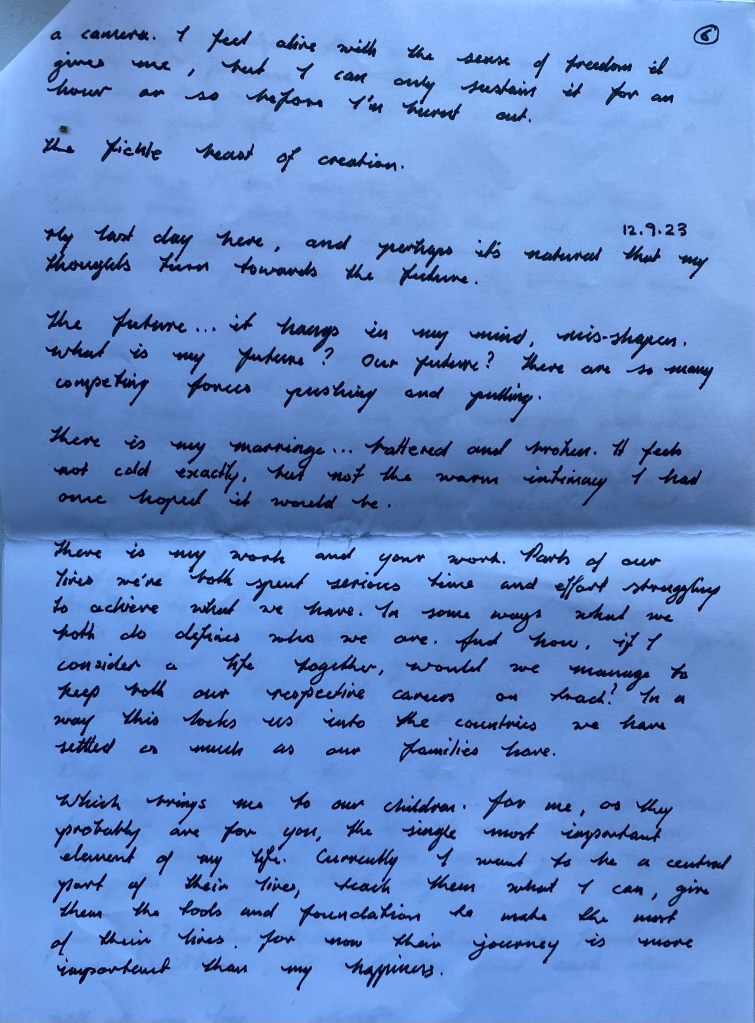 6
a camera. I feel alive with the sense of freedom it
gives me, but I can only sustain it for an
hour or so before I'm burnt out.
The fickle beast of creation.
12.9.23
My last day here, and perhaps it's natural that my
thoughts turn towards the future.
The future... it hangs in my mind, mis-shapen.
What is my future? Our future? There are so many
competing forces pushing and pulling.
There is my marriage... battered and broken. It feels
not cold exactly, but not the warm intimacy I had
once hoped it would be.
There is my work and your work. Parts of our
lives we've both spent serious time and effort struggling
to achieve what we have. In some ways what we
both do defines who we are. And how, if I
consider a life together, would we manage to
keep both our respective careers on track? In a
way this locks us into the countries we have
settled as much as our families have.
Which brings me to our children. For me, as they
probably are for you, the single most important
element of my life. Currently I want to be a central
part of their lives, teach them what I can, give
them the tools and foundation to make the most
of their lives. For now their journey is more
important than my happiness.